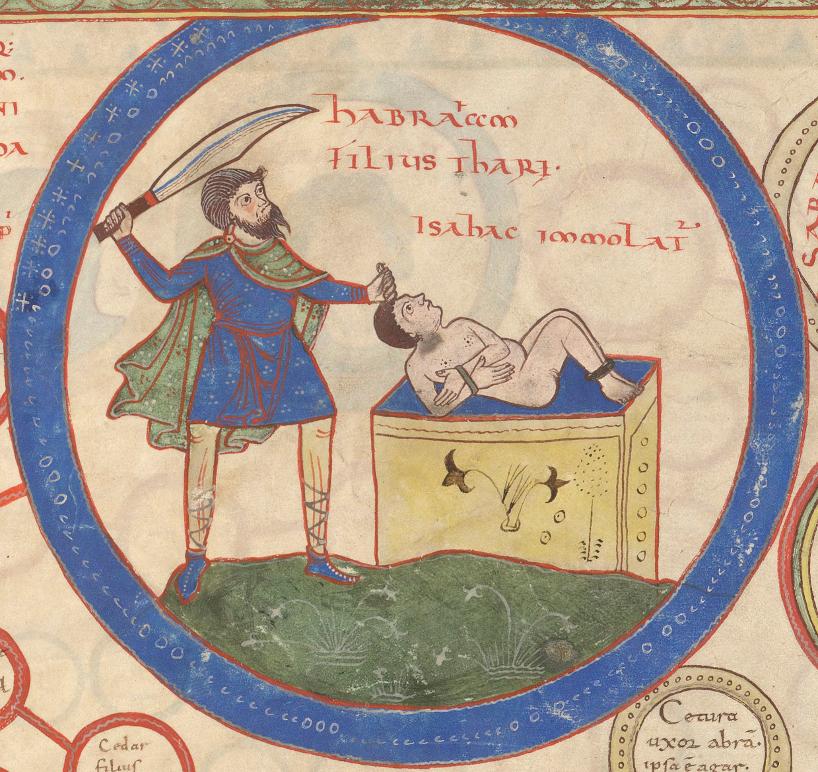 habraam
filius thare.
Isahac immolat̃
Cedar
filius
Cetura
uxor abrã.
ipsa ẽ agar.